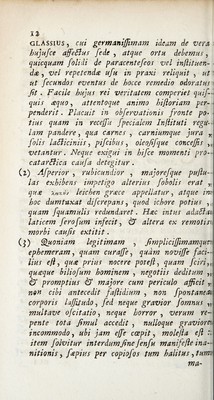 12
GLASSIUS, cui germanissimam ideam de vera
hujusce affectus sede, atque ortu debemus,
quicquam solidi de paracenteseos vel instituen-
dæ, vel repetendæ usu in praxi reliquit, ut
ut secundos eventus de hocce remedio adoratus
sit. Facile hujus rei veritatem comperiet quis-
quis æquo, attentoque animo historiam per-
penderit. Placuit in observationis fronte po-
tius quam in recessu specialem Instituti regu-
lam pandere, qua carnes, carniumque jura
solis lacticiniis, piscibus, oleosisque concessis
vetantur. Neque exigui in hisce momenti pro-
catarctica causa detegitur.
(2) Asperior, rubicundior, majoresque pustu-
las exhibens impetigo alterius sobolis erat,
quæ leichen græce appellatur, atque in
hoc dumtaxat discrepans, quod ichore potius,
quam squamulis redundaret. Hac intus adacta
laticem serosum infecit, & altera ex remotis
morbi causis extitit.
(3) Quoniam legitimam, simplicissimamque
ephemeram, quam curasse, quàm novisse faci-
lius est, quæ prius nocere potest, quam sciri,
quæque biliosum hominem, negotiis deditum,
& promptius & majore cum periculo afficit,
non cibi antecedit fastidium, non spontanea
corporis lassitudo, sed neque gravior somnus,
multave oscitatio, neque horror, verum re-
pente tota simul accedit nulloque graviore
incommodo, ubi jam esse cœpit, molesta est:
item solvitur interdum sine sensu manifeste ina-
nitionis, sæpius per copiosos tum halitus, tum
ma-